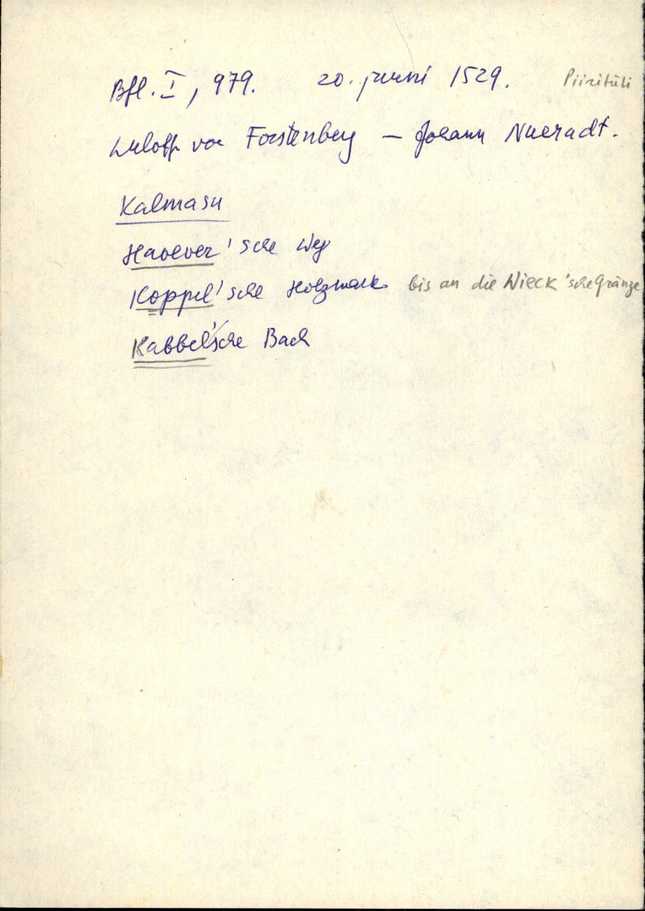 Bfl. I, 979. 20. juuni 1529. Piiritüli
von Forstenberg – Johann Nueradt.
Kalmasu
Havever'sche Weg
Koppel'sche Holzmark bis an die Wieck'sche Gränze
Kabbel'sche Bach